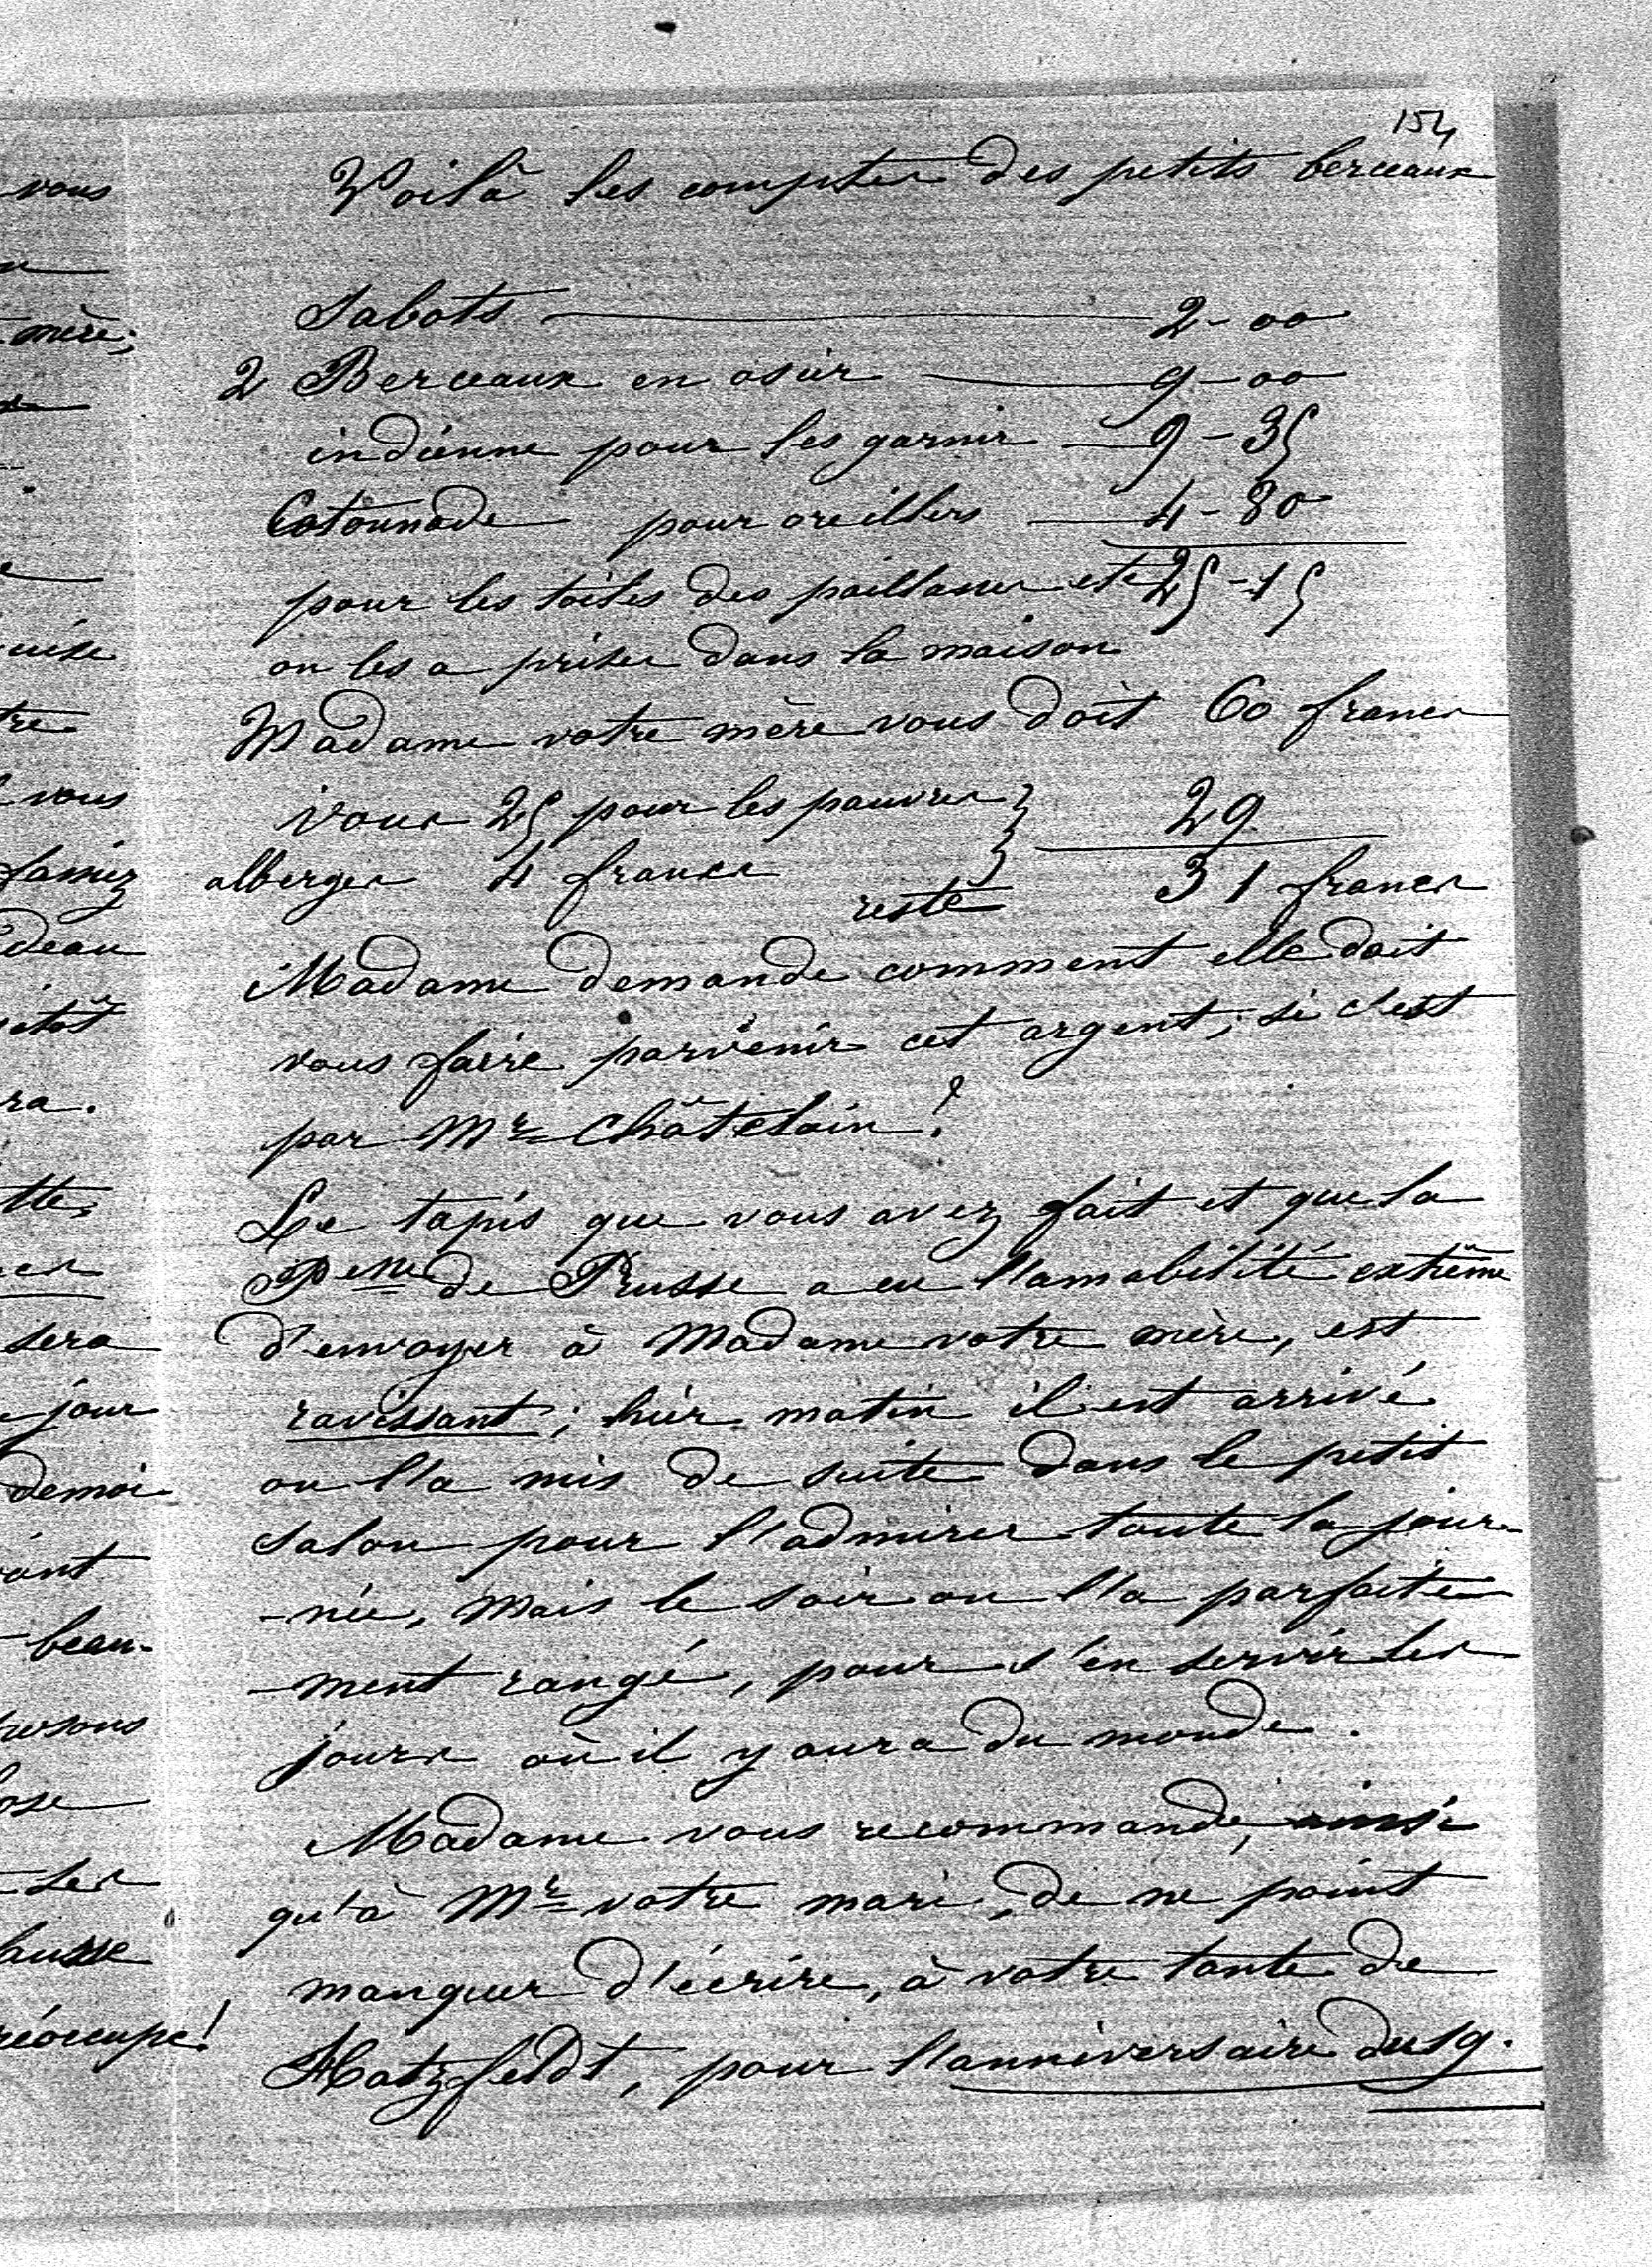 154
Voilà les comptes des petits berceaux
Sabots 2-00
2 Berceaux en osier 9-00
indienne pour les garnir 9-35
Cotounade pour oreillers 4-80
pour les toiles des paillasses etc 25-15
on les a prises dans la maison
Madame votre mère vous doit 60 francs
vous 25 pour les pauvres } 29
alberges 4 francs
reste 31 francs
Madame demande comment elle doit
vous faire parvenir cet argent; si c'est
par Mr Châtelain?
Le tapis que vous avez fait et que la
Pesse de Prusse a eu l'amabilité extrême
d'envoyer à Madame votre mère, est
ravissant; hier matin il est arrivé
on l'a mis de suite dans le petit
salon pour l'admirer toute la jour-
-née, mais le soir on l'a parfaite
-ment rangé, pour s'en servir les
jours où il y aura du monde.
Madame vous recommande, ainsi
qu'à Mr votre mari, de ne point
manquer d'écrire, à votre tante de
Hatzfeldt, pour l'anniversaire du 19.
vous
mère;
tre
vous
deau
ra.
sera
jour
demoi
beau-